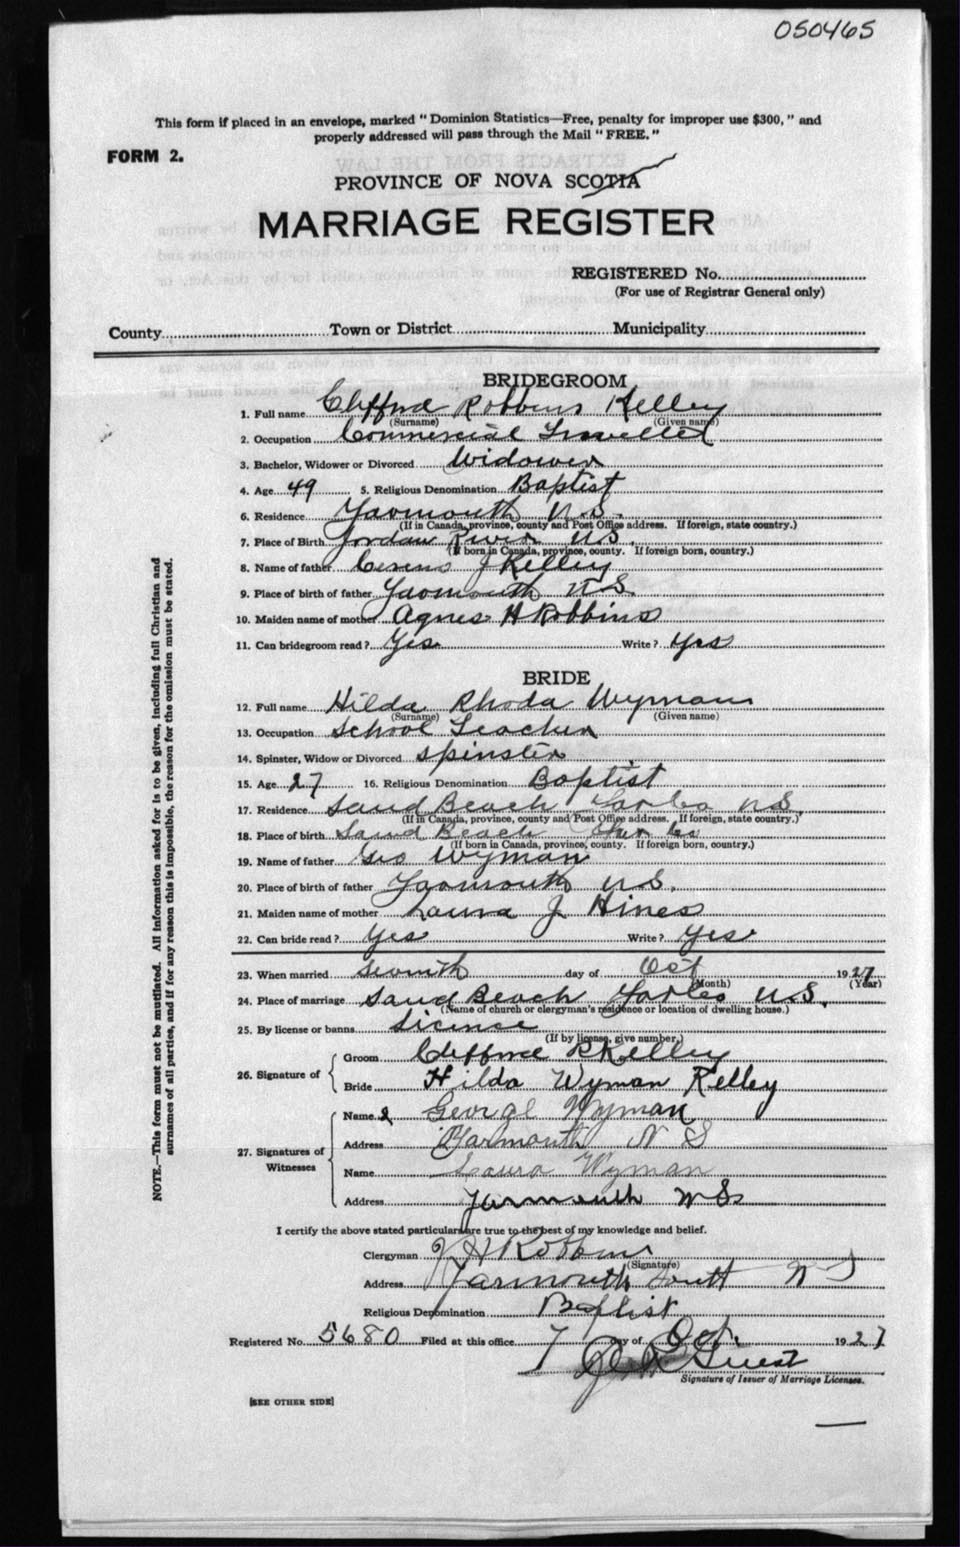 050465
This form if placed in an envelope, marked " Dominion Statistics—Free, penalty for improper use $300, " and
properly addressed will pass through the Mail " FREE. "
FORM 2.
PROVINCE OF NOVA SCOTIA
MARRIAGE REGISTER
REGISTERED No.
(For use of Registrar General only)
County Town or District Municipality
BRIDEGROOM
1. Full name Clifford Robbins Kelley
(Surname) (Given name)
2. Occupation Commercial Traveller
3. Bachelor, Widower or Divorced Widower
4. Age 49 5. Religious Denomination Baptist
6. Residence Yarmouth N.S.
(If in Canada, province, county and Post Office address. If foreign, state country.)
7. Place of Birth Jordan River N.S.
(If born in Canada, province, county. If foreign born, country.)
8. Name of father J Kelley
9. Place of birth of father Yarmouth N.S.
10. Maiden name of mother Agnes H Robbins
11. Can bridegroom read? Yes Write? Yes
BRIDE
12. Full name Hilda Rhoda Wyman
(Surname) (Given name)
13. Occupation School Teacher
14. Spinster, Widow or Divorced Spinster
15. Age 27 16. Religious Denomination Baptist
17. Residence Sand Beach Yar Co N.S.
(If in Canada, province, county and Post Office address. If foreign, state country.)
18. Place of birth Sand Beach Yar Co
(If born in Canada, province, county. If foreign born, country.)
19. Name of father Geo Wyman
20. Place of birth of father Yarmouth N.S.
21. Maiden name of mother Laura J Hines
22. Can bride read? Yes Write? Yes
23. When married Seventh day of Oct 1927
(Month) (Year)
24. Place of marriage Sand Beach Yar Co N.S.
(Name of church or clergyman's residence or location of dwelling house.)
25. By license or banns License
(If by license, give number.)
26. Signature of
Groom Clifford R Kelley
Bride Hilda Wyman Kelley
27. Signatures of Witnesses
Name George Wyman
Address Yarmouth N S
Name Laura Wyman
Address Yarmouth N.S.
I certify the above stated particulars are true to the best of my knowledge and belief.
Clergyman J H Robbins
(Signature)
Address Yarmouth South N S
Religious Denomination Baptist
Registered No. 5680 Filed at this office 7 day of Oct. 1927
Guest
Signature of Issuer of Marriage Licenses.
[SEE OTHER SIDE]
NOTE.—This form must not be mutilated. All information asked for is to be given, including full Christian and
surnames of all parties, and if for any reason this is impossible, the reason for the omission must be stated.